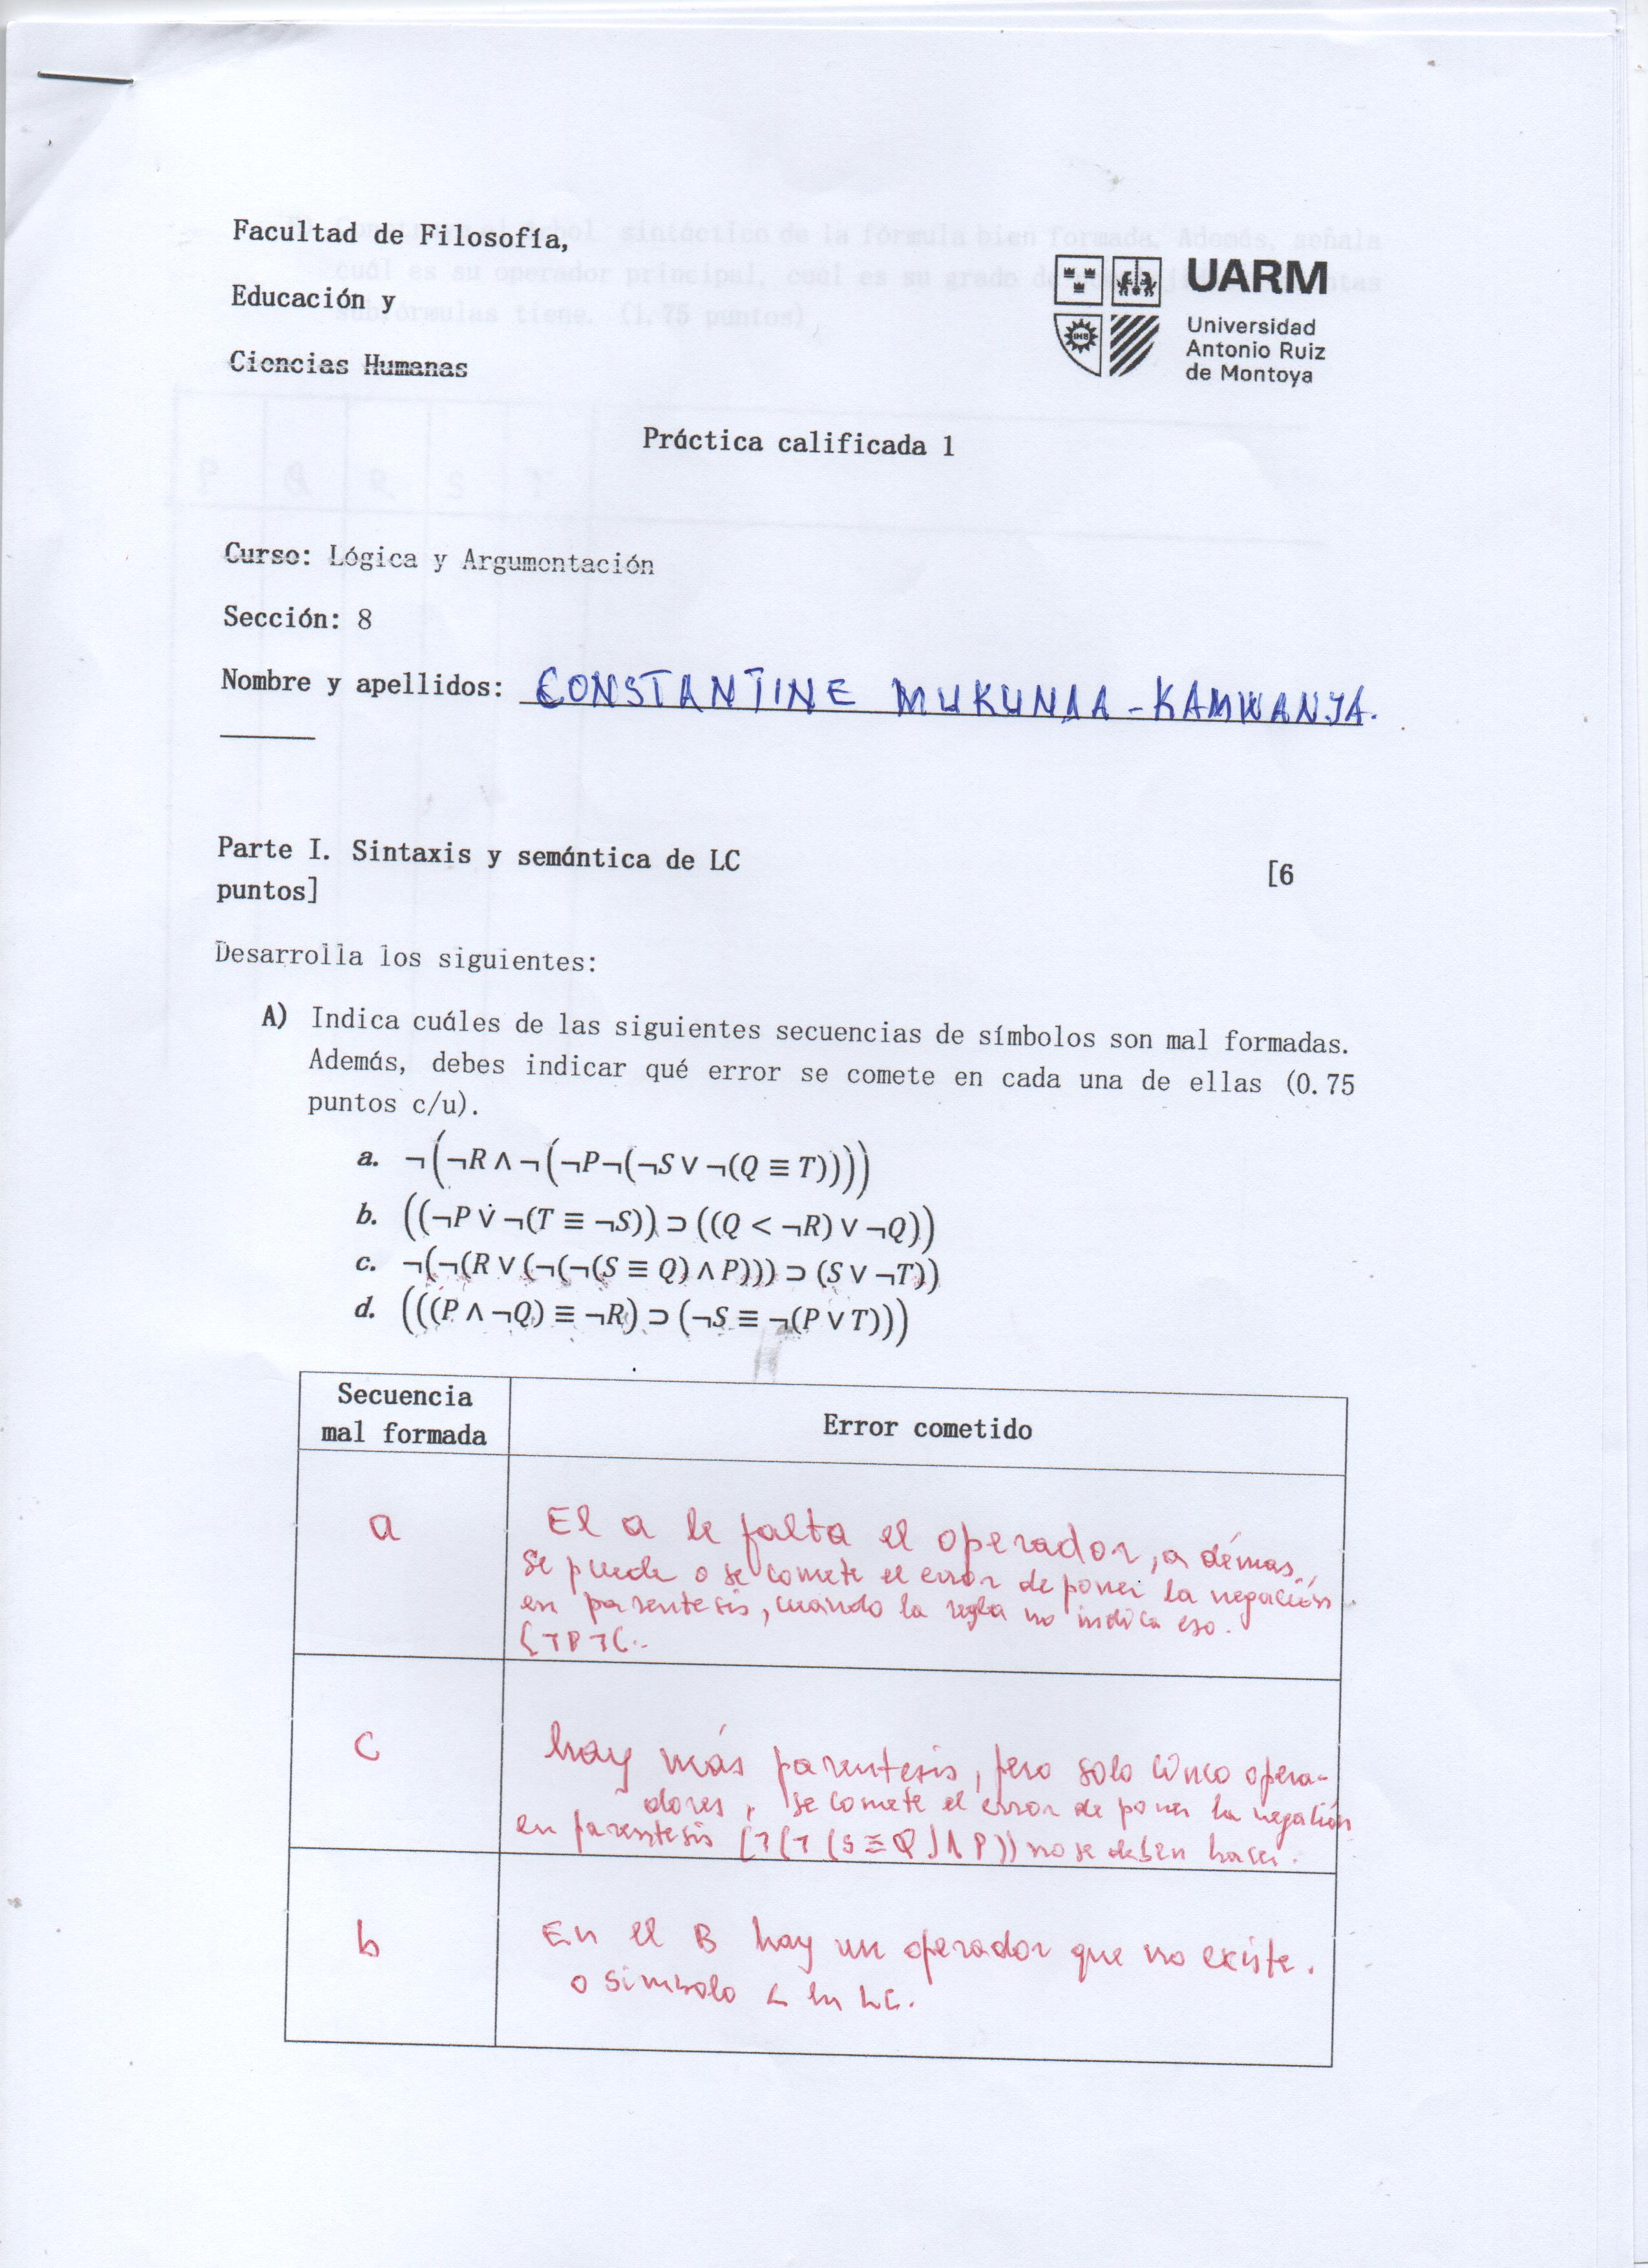 Facultad de Filosofía,
Educación y
Ciencias Humanas
UARM
Universidad
Antonio Ruiz
de Montoya
Práctica calificada 1
Curso: Lógica y Argumentación
Sección: 8
Nombre y apellidos: CONSTANTINE MUKUNAA-KAMWANYA.
Parte I. Sintaxis y semántica de LC [6
puntos]
Desarrolla los siguientes:
A) Indica cuáles de las siguientes secuencias de símbolos son mal formadas.
Además, debes indicar qué error se comete en cada una de ellas (0.75
puntos c/u).
a. ¬(¬R ∧ ¬(¬P¬(¬S ∨ ¬(Q ≡ T))))
b. ((¬P ∨̇ ¬(T ≡ ¬S)) ⊃ ((Q < ¬R) ∨ ¬Q))
c. ¬(¬(R ∨ (¬(¬(S ≡ Q) ∧ P))) ⊃ (S ∨ ¬T))
d. (((P ∧ ¬Q) ≡ ¬R) ⊃ (¬S ≡ ¬(P ∨ T)))
Secuencia
mal formada
Error cometido
a
El a le falta el operador, a démas,
se puede o se comete el error de poner la negación
en parentesis, cuando la regla no indica eso.
(¬P¬(..
c
hay más parentesis, pero solo cinco opera-
dores, se comete el error de poner la negación
en parentesis (¬(¬(S ≡ Q) ∧ P)) no se deben hacer.
b
En el B hay un operador que no existe.
o simbolo < en LC.